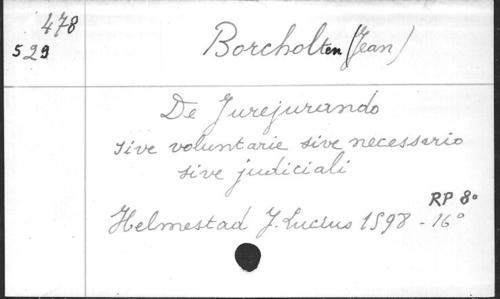 478
529
Borcholten (Jean)
De Jurejurando
sive voluntarie sive necessario
sive judiciali
RP 8°
Helmestad J. Lucius 1598 - 16°